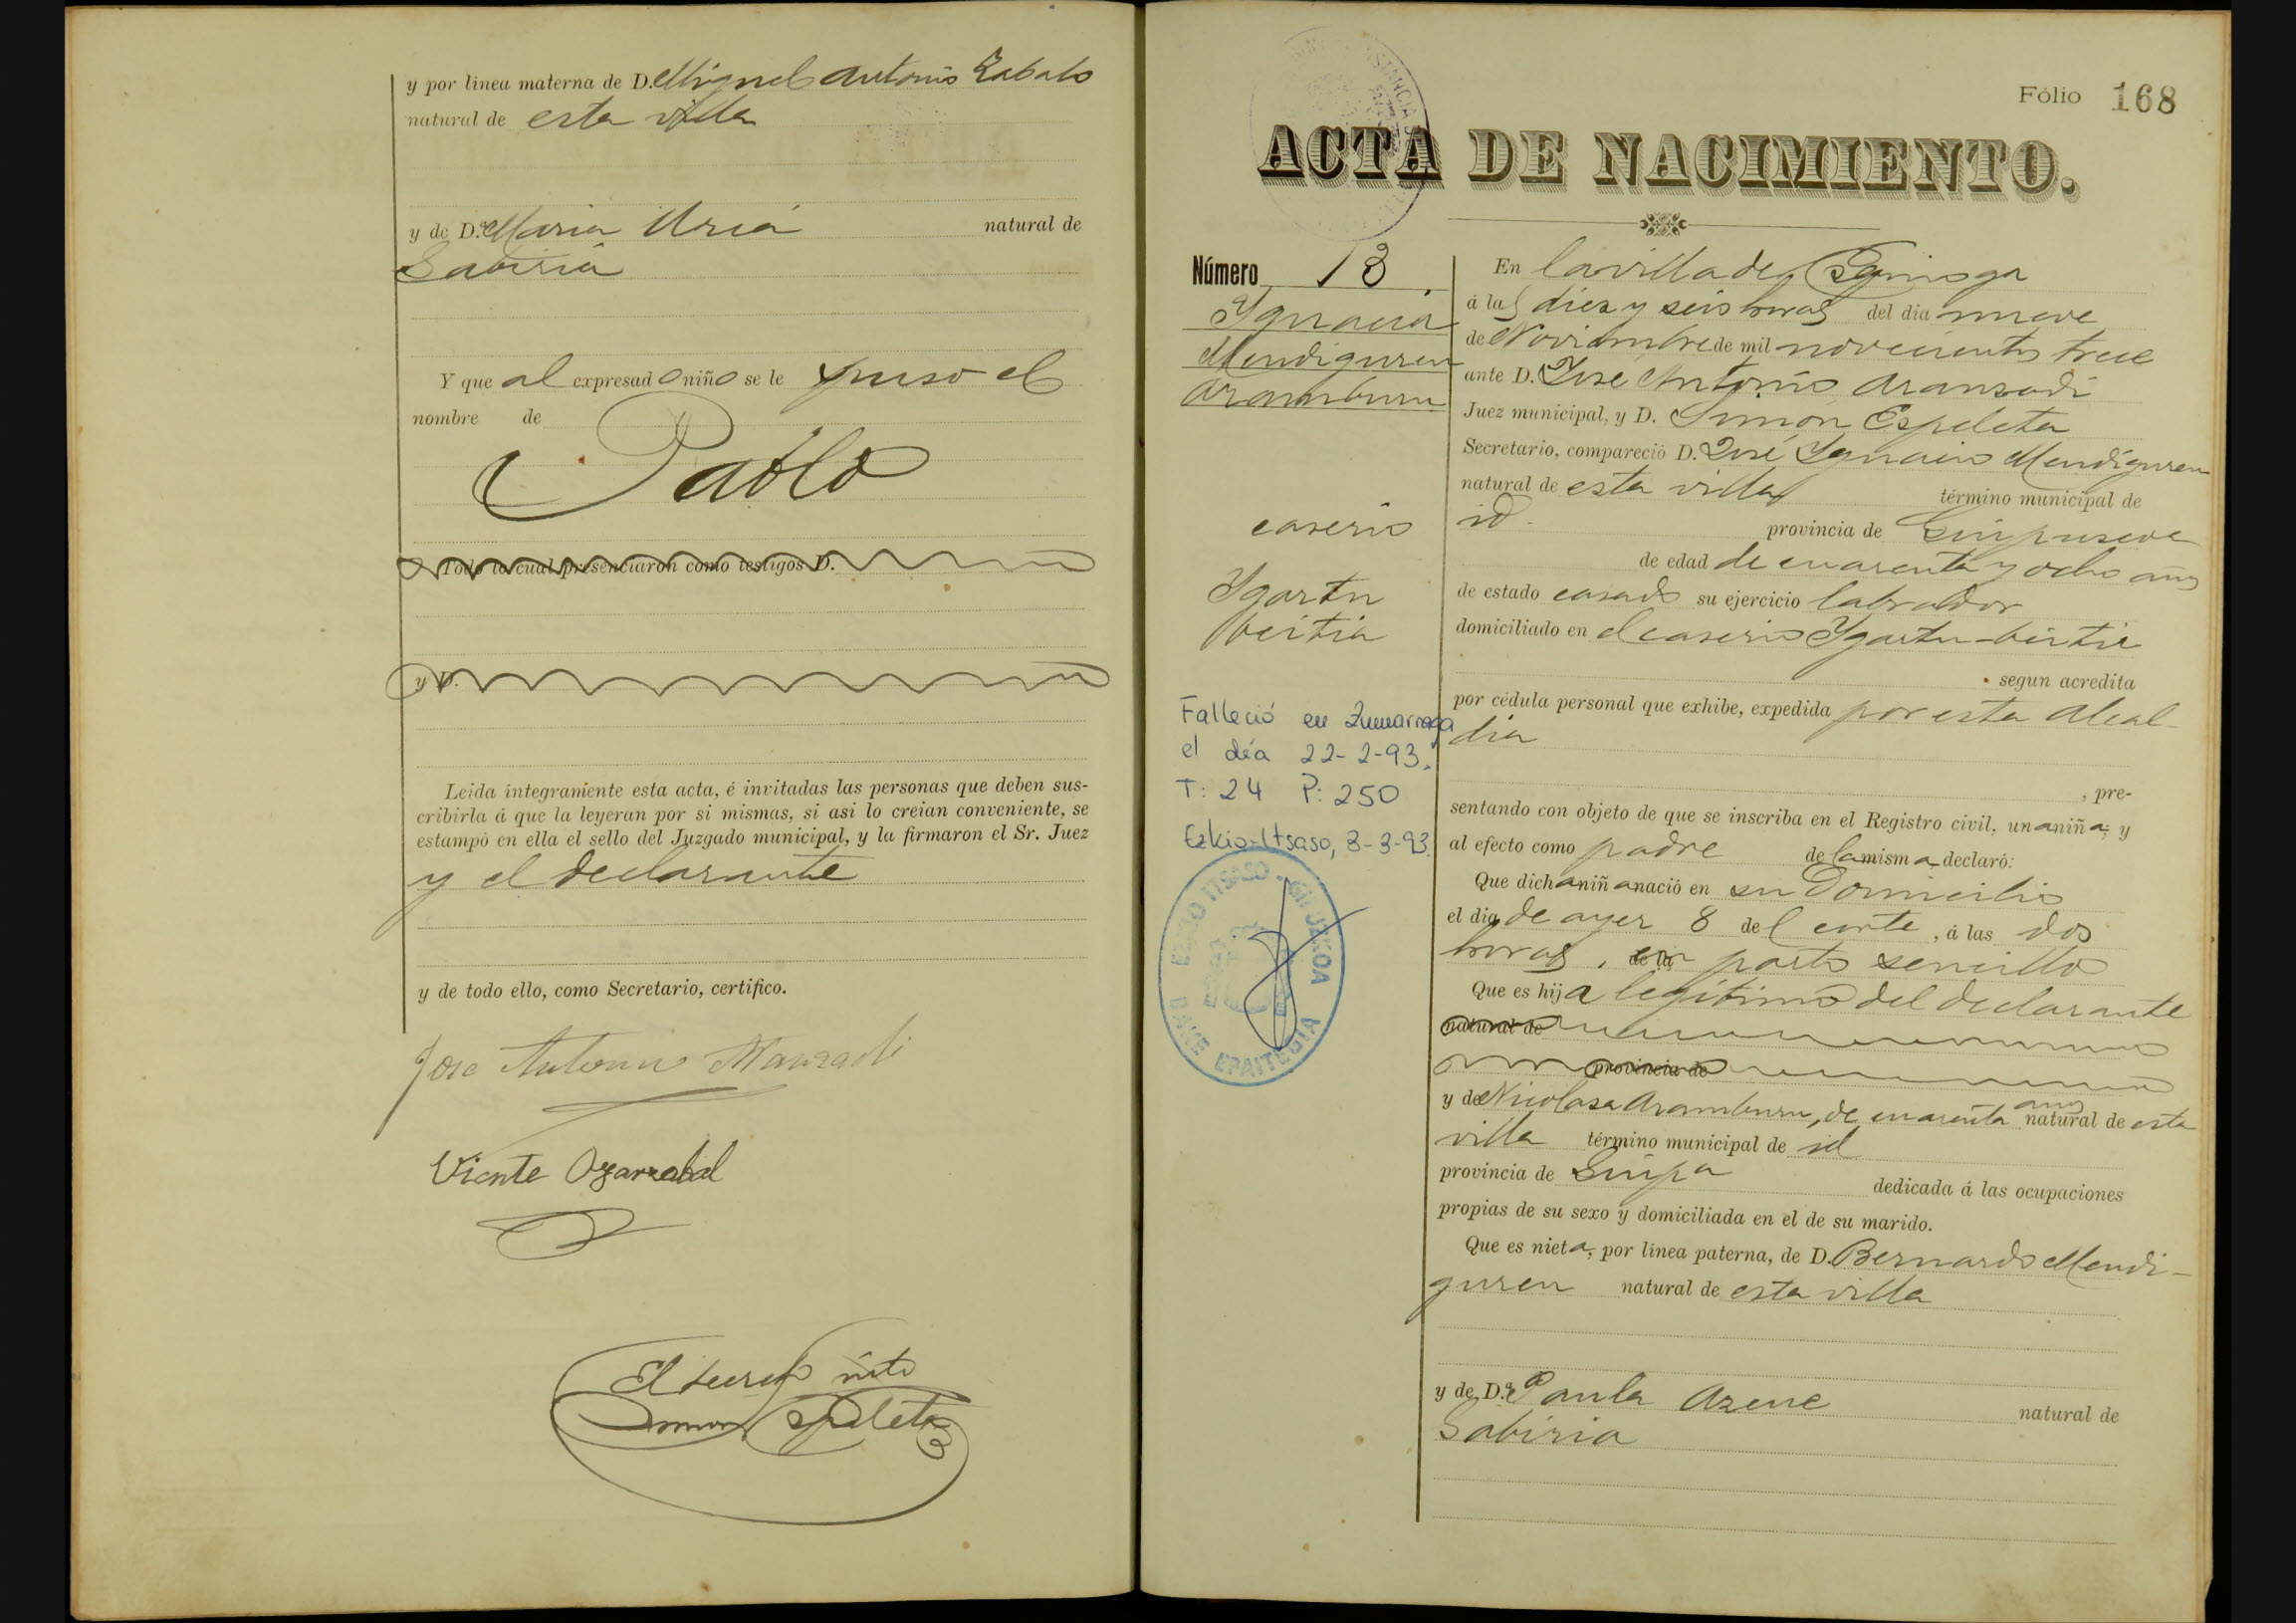 y por línea materna de D. Miguel Antonio Zabalo
natural de esta villa
y de D.ª Maria Uria natural de
Gabiria
Y que al expresado niño se le puso el
nombre de
Pablo
Todo lo cual presenciaron como testigos D.
y D.
Leida íntegramente esta acta, é invitadas las personas que deben sus-
cribirla á que la leyeran por si mismas, si asi lo creian conveniente, se
estampó en ella el sello del Juzgado municipal, y la firmaron el Sr. Juez
y el declarante
y de todo ello, como Secretario, certifico.
Jose Antonio Aranzadi
Vicente Oyarzabal
El secret.º
Simon Espeleta
Fólio 168
ACTA DE NACIMIENTO.
Número 13
Ygnacia
Mendiguren
Aramburu
caserio
Ygartu
beitia
Falleció en Zumarraga
el día 22-2-93.
T: 24 P: 250
Ezkio-Itsaso, 3-3-93.
EZKIO ITSASO - GIPUZKOA
BAKE EPAITEGIA
En la villa de
á las diez y seis horas del dia nueve
de Noviembre de mil novecientos trece
ante D. José Antonio Aranzadi
Juez municipal, y D. Simón Espeleta
Secretario, compareció D. José Ygnacio Mendiguren
natural de esta villa término municipal de
id. provincia de Guipuzcoa
de edad de cuarenta y ocho años
de estado casado su ejercicio labrador
domiciliado en el caserio Ygartu-beitia
segun acredita
por cédula personal que exhibe, expedida por esta Alcal-
dia
, pre-
sentando con objeto de que se inscriba en el Registro civil, una niña, y
al efecto como padre de la misma declaró:
Que dicha niña nació en su domicilio
el dia de ayer 8 del corte, á las dos
horas, de la en parto sencillo
Que es hija legítima del declarante
natural de
provincia de
y de Nicolasa Aramburu, de cuarenta años natural de esta
villa término municipal de id
provincia de Guipa dedicada á las ocupaciones
propias de su sexo y domiciliada en el de su marido.
Que es nieta, por línea paterna, de D. Bernardo Mendi-
guren natural de esta villa
y de D.ª Paula Azcue natural de
Gabiria